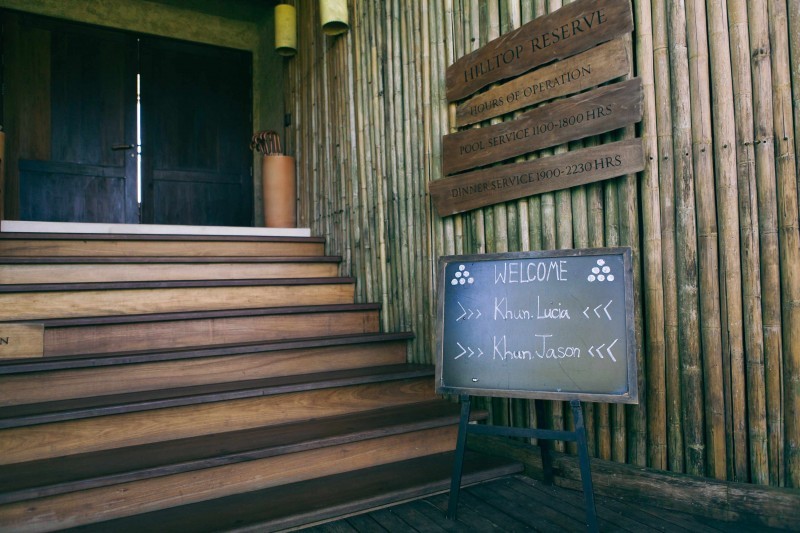 HILLTOP RESERVE
HOURS OF OPERATION
POOL SERVICE 1100-1800 HRS
DINNER SERVICE 1900-2230 HRS
WELCOME
>>> Khun.Lucia <<<
>>> Khun.Jason <<<